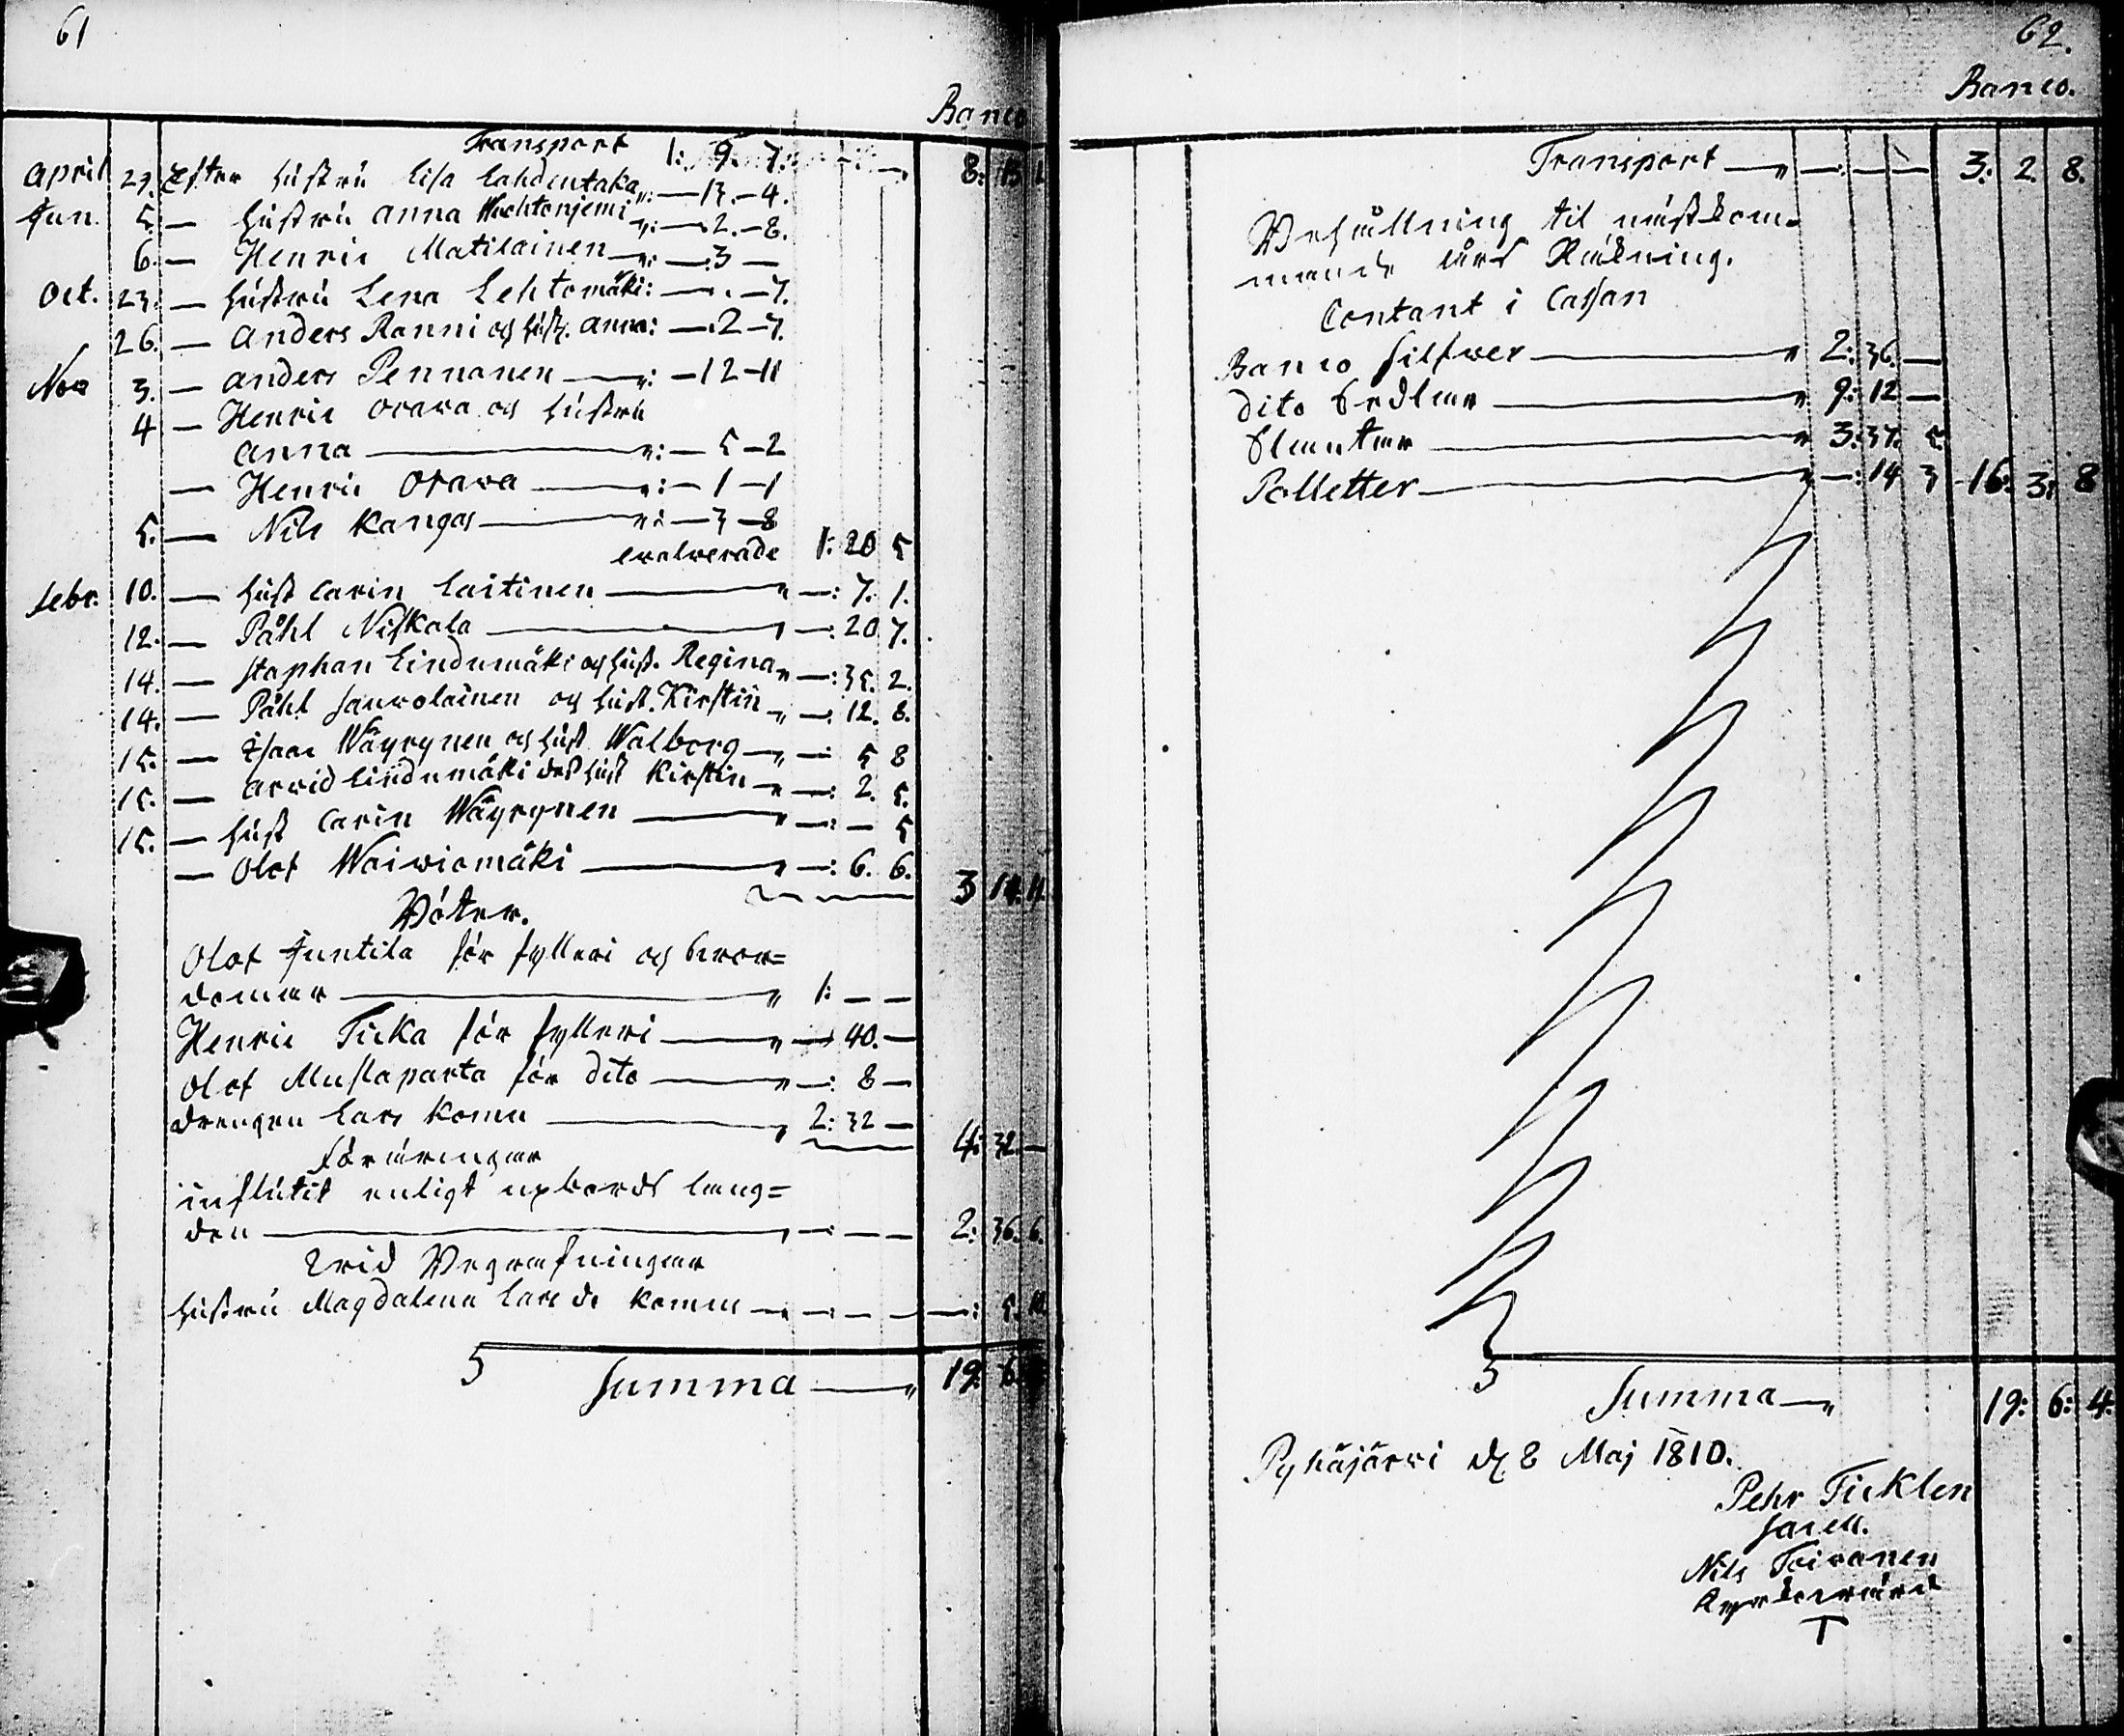 61
Banco
Transport 1: 9. 7. 8: 15 1.
April 29. Efter hustru Lisa Lahdentaka „: — 13. — 4.
Jun. 5. — hustru Anna „: — 2. — 8.
6. — Henric Matilainen „: — 3 —
Oct. 23. — hustru Lena Lehtomäki: — „ — 7.
26. — Anders Ranni och hust. Anna: — 2 — 7.
Nov 3. — Anders Pennanen „: — 12 — 11
4 — Henric Orava och hustru
Anna „: — 5 — 2
— Henric Orava „: — 1 — 1
5. — Nils Kangas „: — 3 — 8
evalverade 1: 20 5
Febr. 10. — hust Carin Laitinen „ —: 7. 1.
12. — Påhl Niskala „ —: 20 7.
14. — Staphan Lindumäki och hust. Regina „ —: 35. 2.
14. — Påhl Saurolainen och hust. Kirstin „ —: 12. 8.
15. — Isaac Wäyrynen och hust Walborg „ —: 5 8
15. — Arvid Lindumäki des hust Kirstin „ —: 2. 5.
15. — hust Carin Wäyrynen „ —: — 5
— Olof Waiwiomäki „ —: 6. 6.
3 14. 11.
Böter.
Olof Juntila för fylleri och
„ 1: — —
Henric Ticka för fylleri „ — 40. —
Olof Mustaparta för dito „ —: 8 —
drengen Lars Komu „ 2: 32 —
4: 32. —
Föräringar
influtit enligt upbörds läng=
den „ —: — — 2: 36. 6.
Wid Begrafningar
hustru Magdalena Lars de Komu „ — — — —: 5. 10.
Summa „ 19: 6.
62.
Banco.
Transport „ —: — — 3: 2. 8.
Behållning til nästkom-
mande års Räkning.
Contant i Cassan
Banco Silfwer „ 2: 36. —
Dito Sedlar „ 9: 12 —
Slantar „ 3: 37. 5
Polletter „ —: 14 3 16: 3: 8
Summa „ 19: 6: 4.
Pyhäjärwi d. 8 Maj 1810.
Pehr Ticklen
Sacell.
Nils Toivanen
Kyrkovärd
T